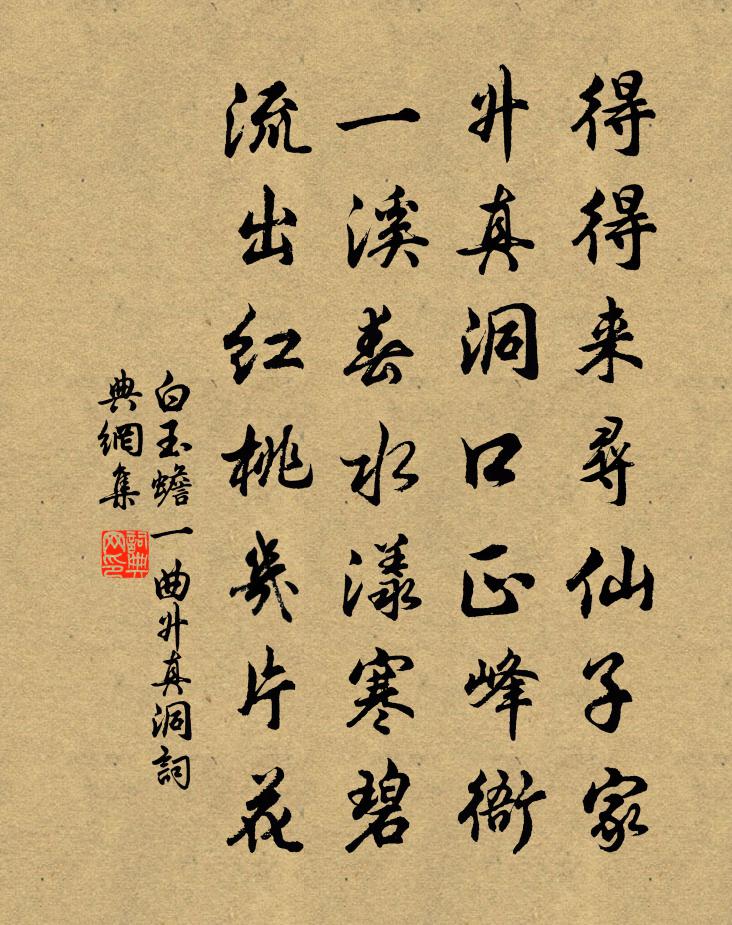 得得来尋仙子家
升真洞口正峰衙
一溪春水漾寒碧
流出红桃幾片花
白玉蟾一曲升真洞詞
典網集
詞典网印